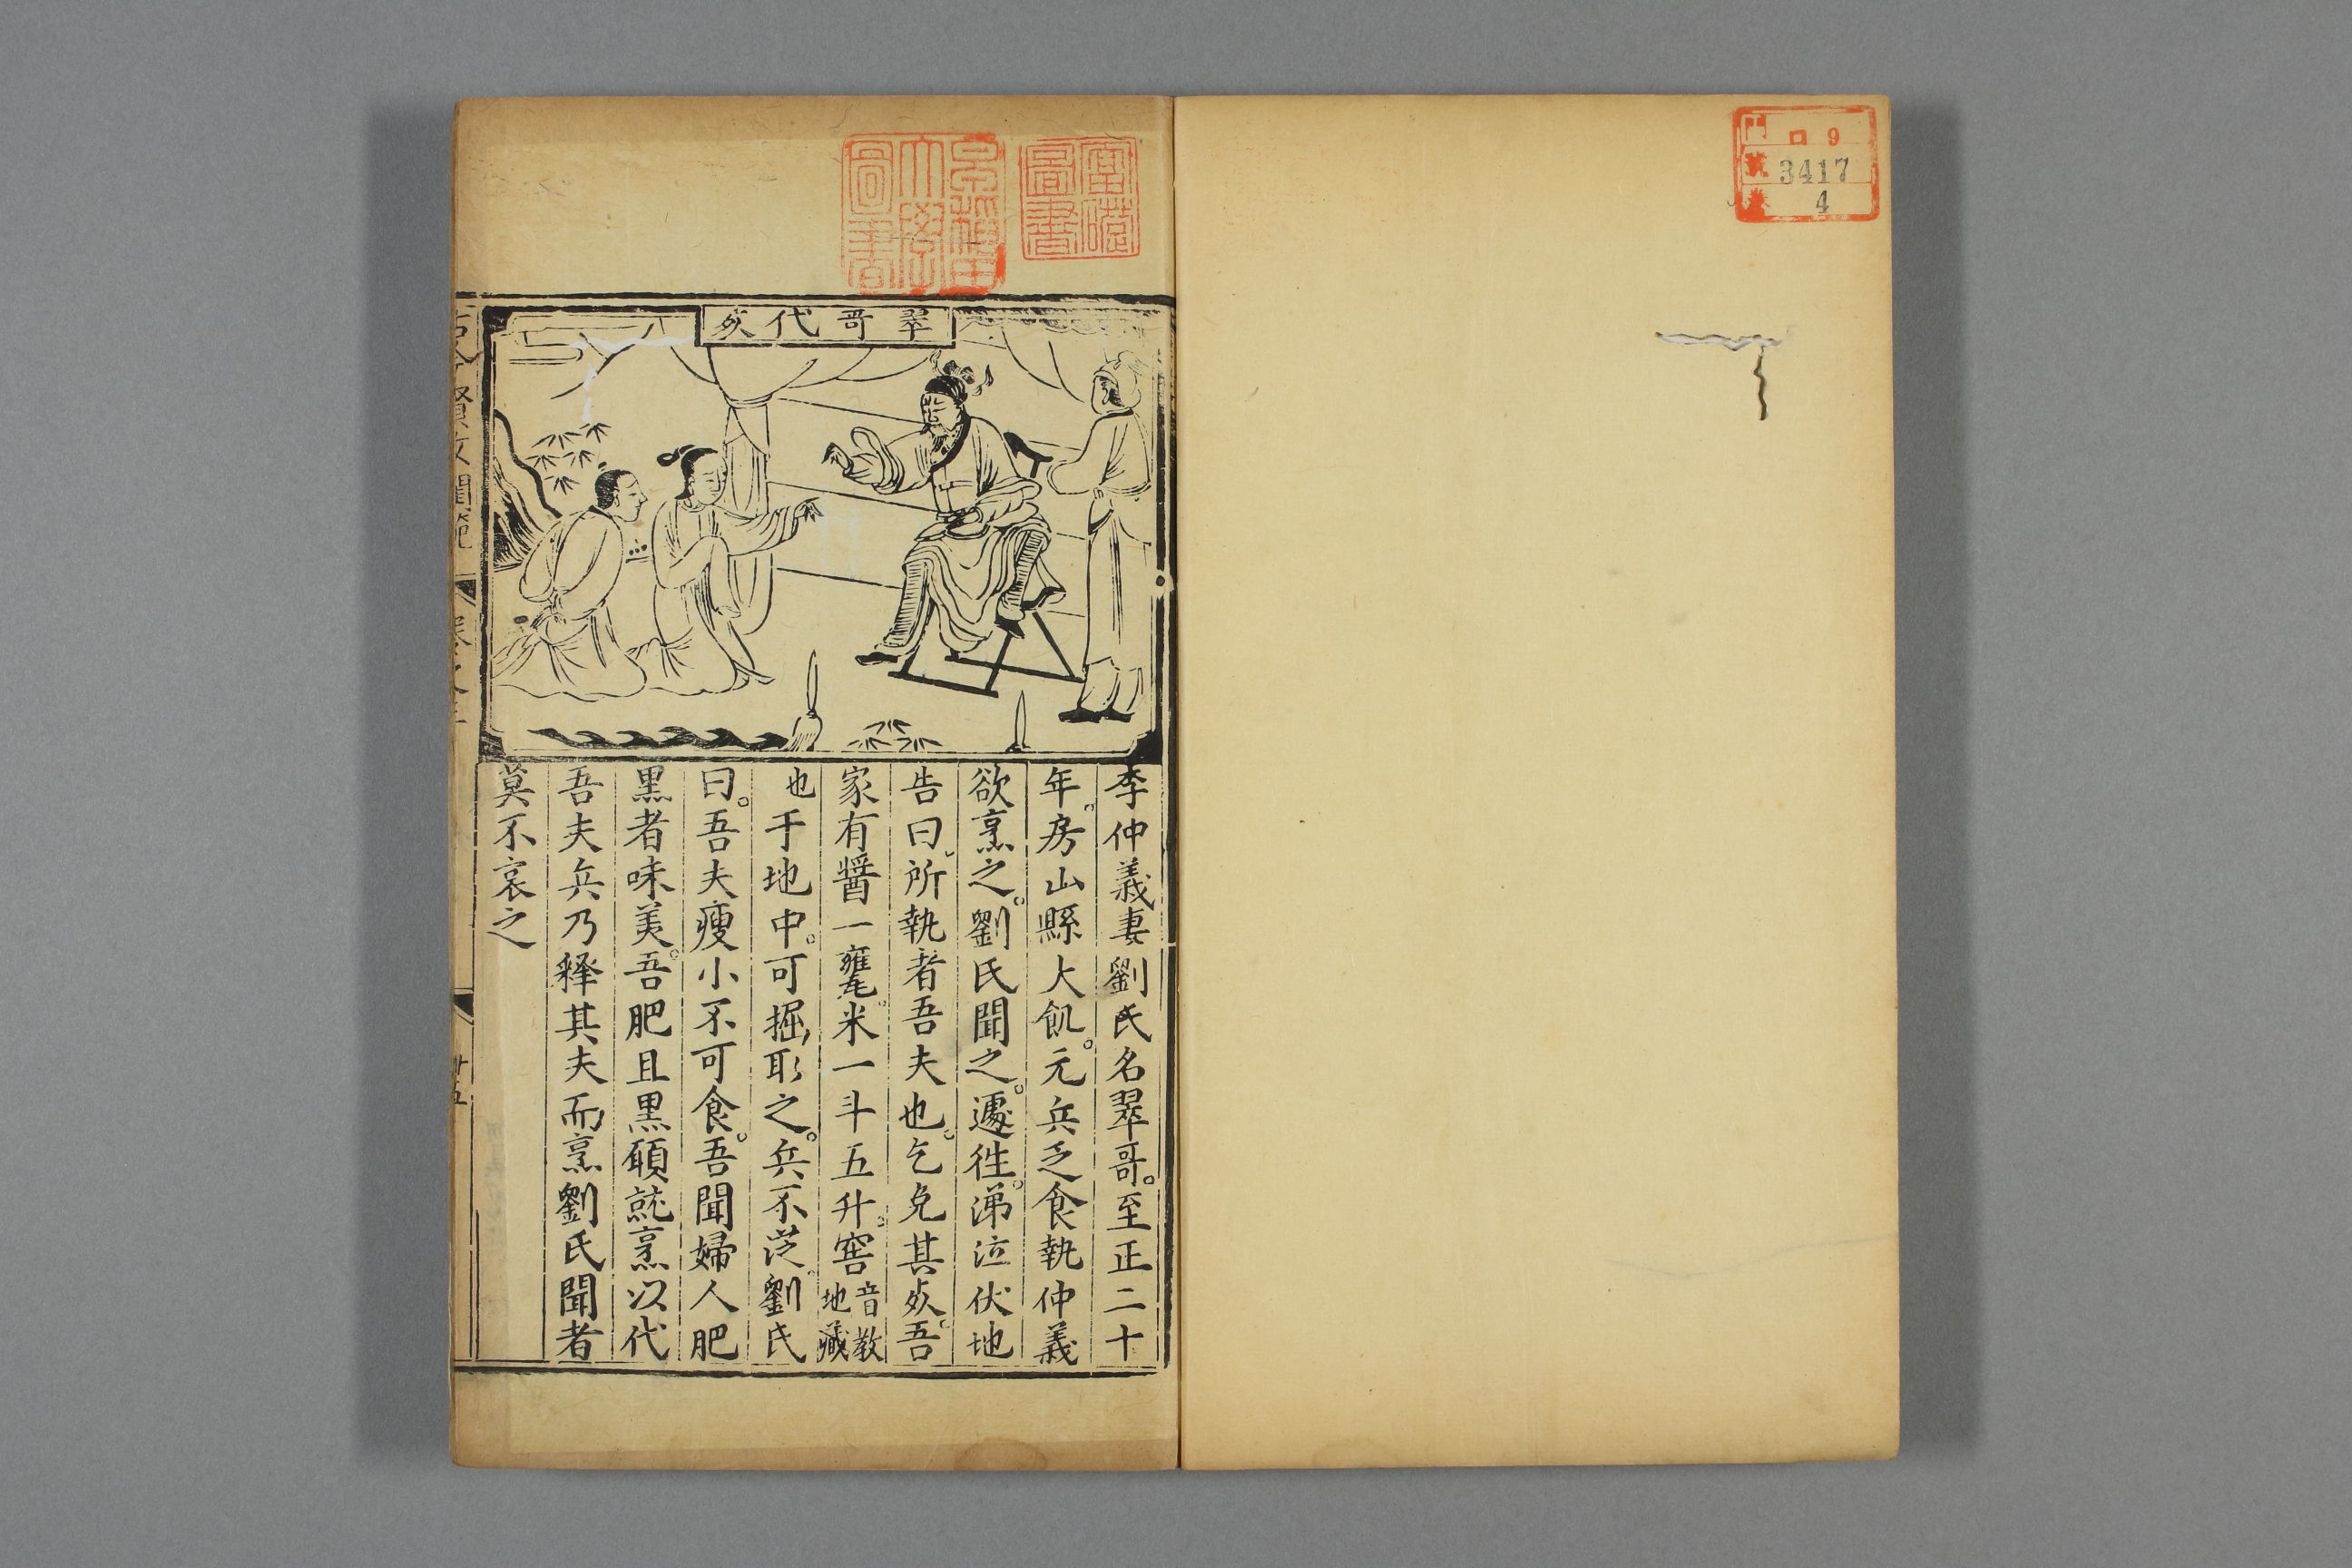 門 口 9
號 3417
卷 4
翠哥代死
李仲義妻劉氏名翠哥。至正二十
年。房山縣大飢。元兵乏食執仲義
欲烹之。劉氏聞之。遽徃。涕泣伏地
告曰。所執者吾夫也。乞免其死。吾
家有醬一甕。米一斗五升。窖音教地藏
也于地中。可掘取之。兵不從。劉氏
曰。吾夫瘦小不可食。吾聞婦人肥
黑者味美。吾肥且黒願就烹以代
吾夫兵乃释其夫而烹劉氏聞者
莫不哀之
古今賢女閨範
廿五